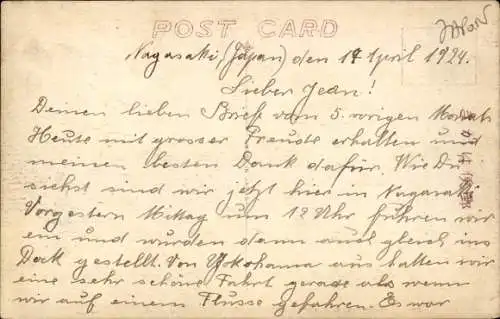 JAPAN
POST CARD
Nagasaki, (Japan) den 14 April 1924.
Lieber Jean!
Deinen lieben Brief vom 5. vorigen Monats
Heute mit grosser Freude erhalten und
meinen besten Dank dafür. Wie Du
siehst sind wir jetzt hier in Nagasaki
Vorgestern Mittag um 12 Uhr führen wir
ein und wurden dann auch gleich ins
Dock gestellt. Von Yokohama aus hatten wir
eine sehr schöne Fahrt gerade als wenn
wir auf einem Flusse gefahren. Es war